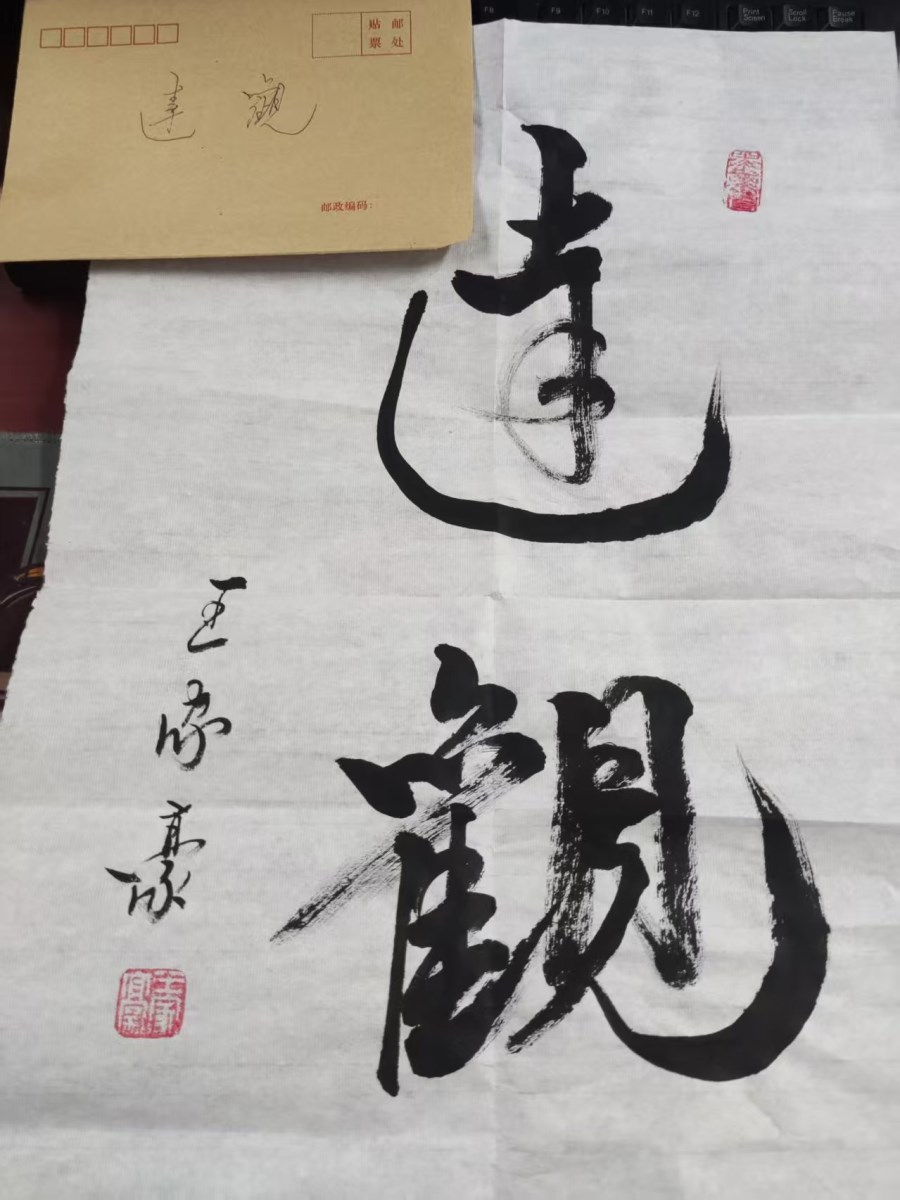 F8 F9 F10 F11 F12 Print Screen Scroll Lock Pause Break
贴邮
票处
達 觀
邮政编码：
達觀
王家豪